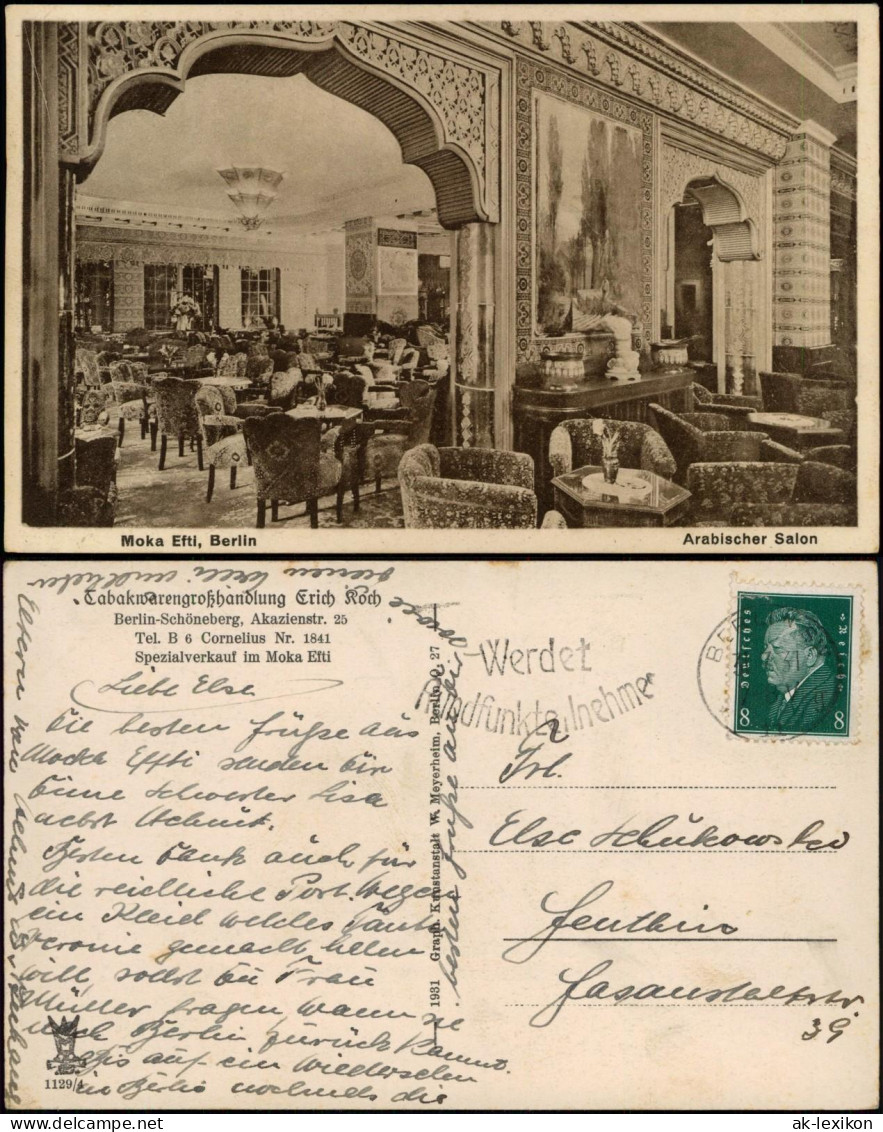 Moka Efti, Berlin
Arabischer Salon
Tabakwarengroßhandlung Erich Koch
Berlin-Schöneberg, Akazienstr. 25
Tel. B 6 Cornelius Nr. 1841
Spezialverkauf im Moka Efti
Liebe Else
Die besten Grüße aus
Mocka Effti senden Dir
Deine Schwester Lisa
nebst Helmut.
Besten Dank auch für
die reichliche Post. Wegen
ein Kleid welches Tante
gemacht haben
will, sollst Du Frau
Müller fragen, wann sie
nach Berlin zurück kommt.
Bis auf ein Wiedersehen
in Berlin nochmals die
besten Grüße auch
Eltern von Helmut
1129/4
1931 Graph. Kunstanstalt W. Meyerheim, Berlin O. 27
Werdet
Rundfunkteilnehmer
Deutsches Reich
8 8
Frl.
Else Schükowsky
Genthin
39
ak-lexikon